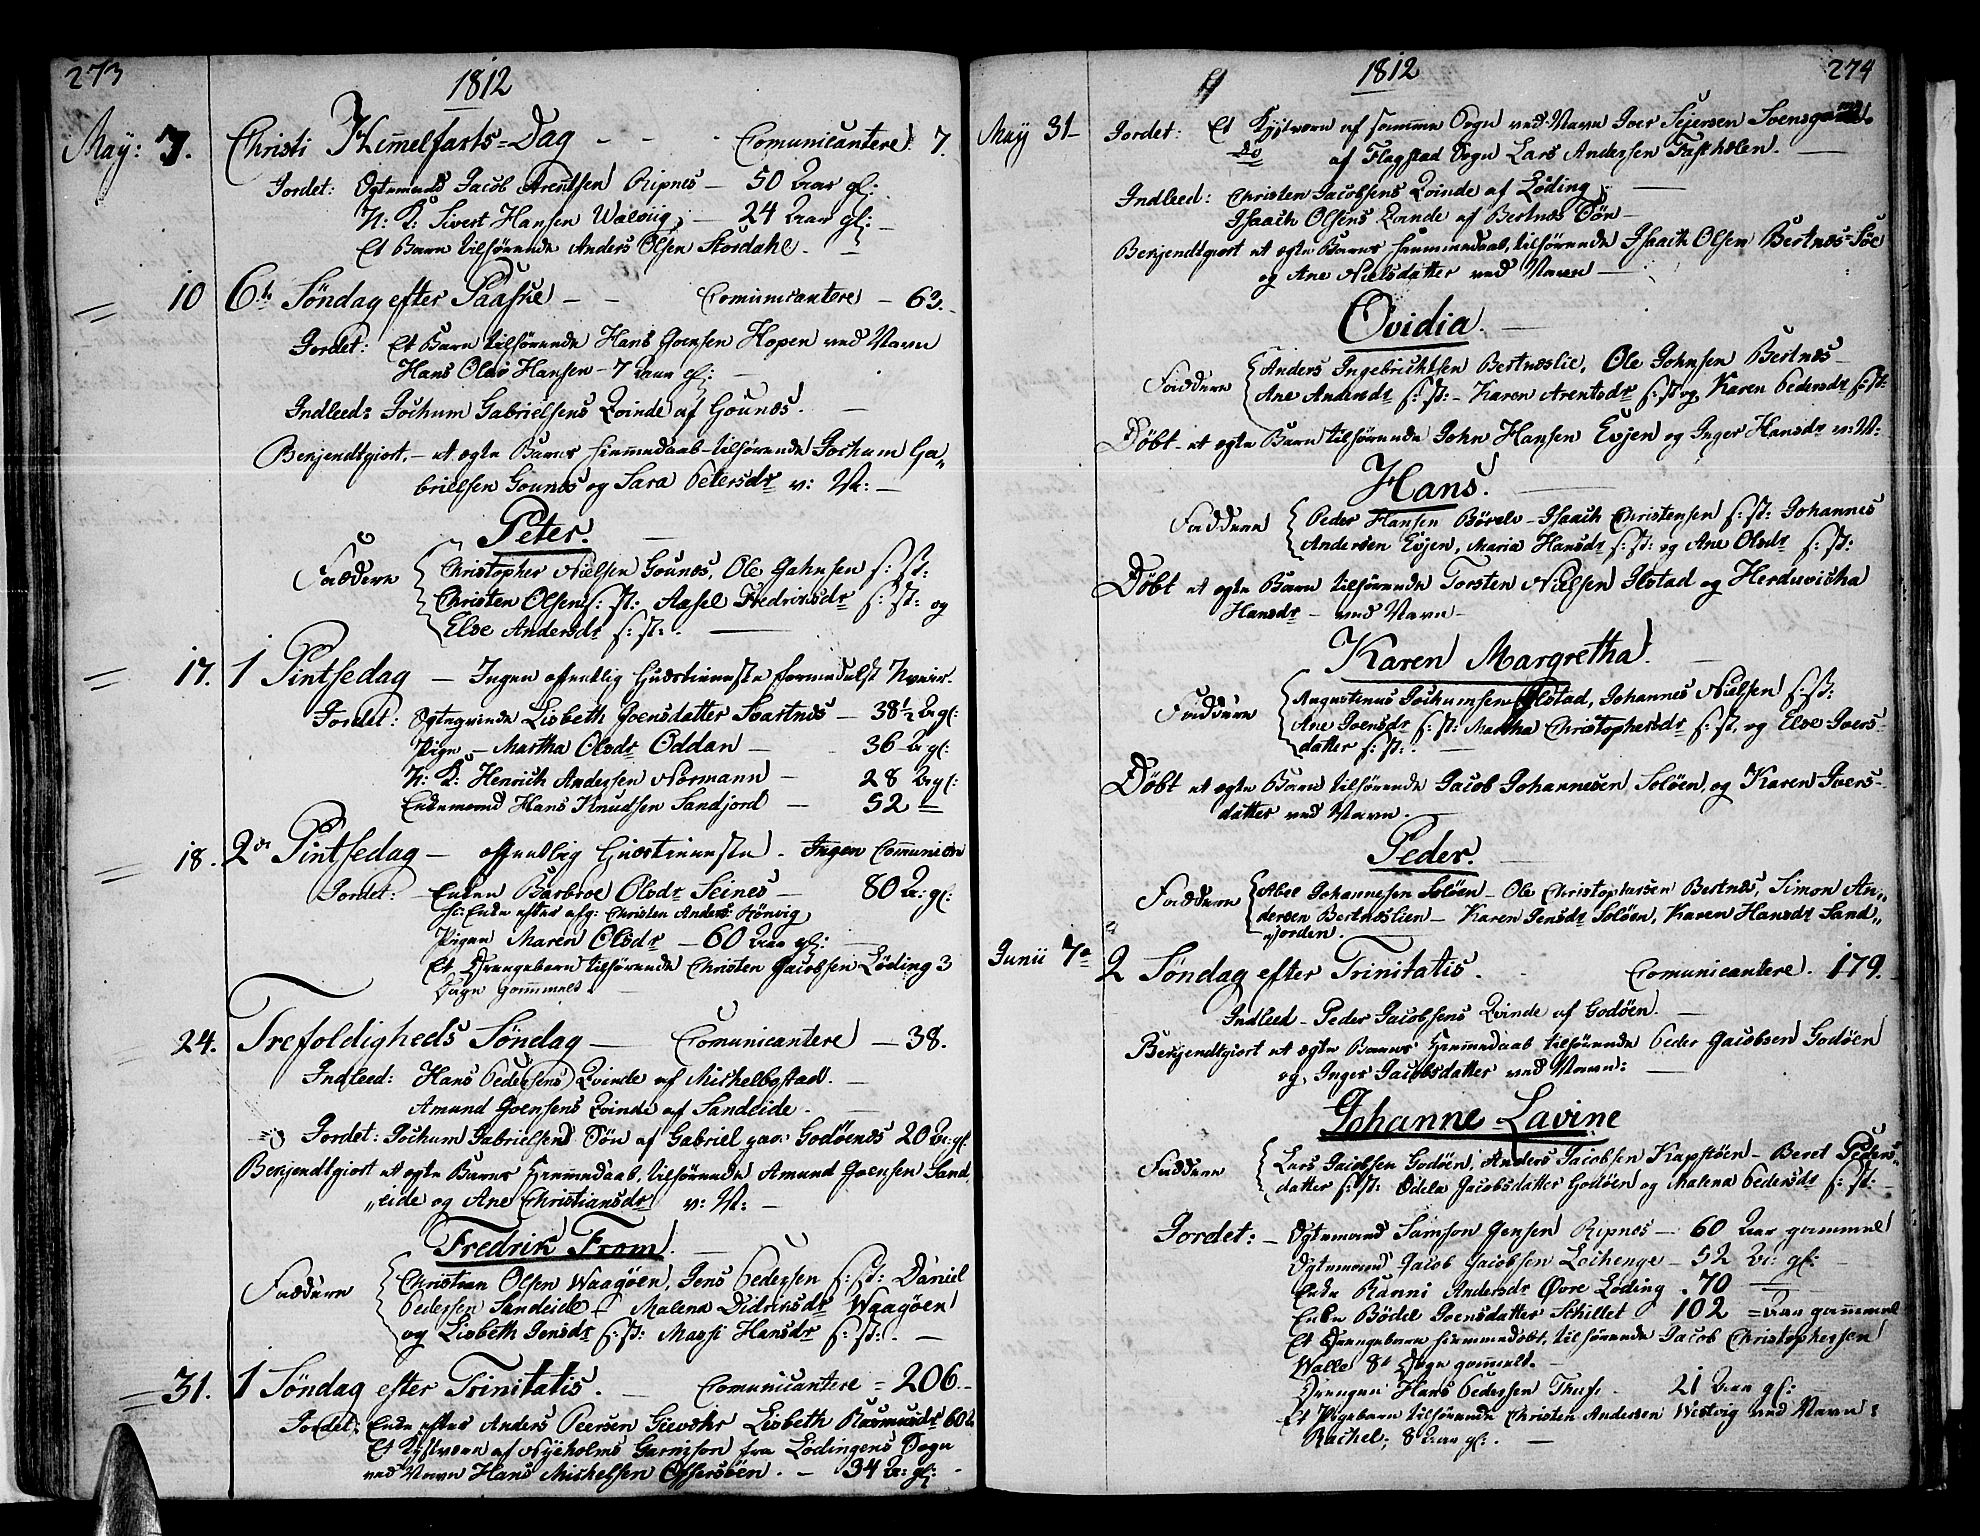 273
1812
May: 7. Christi Himelfarts=Dag - - Comunicantere 7.
Jordet: Ægtemand Jacob Arentsen Ripnes - 50 Aar gl:
N: K: Sivert Hansen Walviig - 24 Aar gl:
Et Barn tilhørende Anders Olsen Stordahl.
10 6te Søndag efter Paaske - - Comunicantere - 63.
Jordet: Et Barn tilhørende Hans Joensen Hopen ved Navn
Hans Olai Hansen - 7 Aar gl:
Indleed: Jochum Gabrielsens Qvinde af Gounes.
Benjendtgiort, - et ægte Barns hiemmedaab tilhørende Jochum Ga„
brielsen Gounes og Sara Petersdr v: N: -
Peter.
Faddere Christopher Nielsen Gounes, Ole Jahnsen s: st:
Christen Olsen s: st: Aasel Fredriksdr s: st: og
Else Andersdr s: st: .
17. 1 Pintsedag - Ingen offentlig Gudstieneste formedelst Uveir.
Jordet: Ægteqvinde Lisbeth Joensdatter Svartnes - 38½ Ar gl:
Pige - Martha Olsdr Oddan - 36 Ar gl:
N: K: Henrich Andersen Normann - 28 Ar gl:
Enkemand Hans Knudsen Sandjord - 52 =
18. 2den Pintsedag - offentlig Gudstieneste. Ingen Communion
Jordet: Enken Barbroe Olsdr Seines - 80 A: gl:
Enke efter afg: Christen Anders: Rönvig
Pigen Maren Olsdr - 60 Aar gl:
Et Drengebarn tilhørende Christen Jacobsen Löding 3
Dage gammelt.
24. Trefoldigheds Søndag - Comunicantere - 38.
Indleed: Hans Pedersens Qvinde af Mickelbostad.
Amund Joensens Qvinde af Sandeide.
Jordet: Jochum Gabrielsens Søn af Gabriel Godöenes 20 Ar: gl.
Benjendtgiort et ægte Barns hiemmedaab, tilhørende Amund Joensen Sand„
„eide og Ane Christiansdr v: N: -
Fredrik From.
Faddere Christian Olsen Waagöen, Jens Pedersen s: st: Daniel
Pedersen Sandeide, Malena Didriksdr Waagöen
og Lisbeth Jensdr s: st: Massi Hansdr s: st: . -
31. 1 Søndag efter Trinitatis. - Comunicantere = 206.
Jordet: Enke efter Anders Peersen Lisbeth Rasmusdr 60 A
Et Kystvern af Nyeholms Garnison fra Lödingens Sogn
ved Navn Hans Mickelsen Offersöen. - 34 A: gl:
274
1812
May 31 Jordet: Et Kystvern af samme Sogn ved Navn Iver Sejersen Svensgaard.
Do af Flagstad Sogn Lars Andersen
Indleed: Christen Jacobsens Qvinde af Löding. -
Isaach Olsens Qvinde af Bertnæs Söe -
Benjendtgiort et ægte Barns hiemmedaab, tilhørende Isaach Olsen Bertnæs=Söe
og Ane Nielsdatter ved Navn -
Ovidia.
Faddere Anders Ingebrichtsen Bertnæslie, Ole Johnsen Bertnæs -
Ane Andersdr s: st: - Karen Arentsdr s: st: og Karen Pedersdr s: st:
Döbt et ægte Barn tilhørende John Hansen Evjen og Inger Hansdr v: N:
Hans.
Faddere Peder Hansen Börelv - Isaach Christensen s: st: Johannes
Andersen Evjen, Maria Hansdr s: st: og Ane Olsdr s: st:
Döbt et ægte Barn tilhørende Torsten Nielsen Ilstad og Herduvicha
Hansdr - ved Navn -
Karen Margretha.
Faddere Augustinus Jochumsen Ilstad, Johannes Nielsen s: st:
Ane Joensdr s: st: Martha Christophersdr s: st. og Else Ivers„
datter s: st: .
Döbt et ægte Barn tilhørende Jacob Johannesen Solöen, og Karen Ivers-
datter ved Navn.
Peder.
Faddere Abel Johannesen Solöen - Ole Christophersen Bertnæs, Simon An„
dersen Bertnæslien - Karen Jensdr Solöen, Karen Hansdr Sand„
„jorden.
Junii 7de 2 Søndag efter Trinitatis. Comunicantere. 179.
Indleed - Peder Jacobsens Qvinde af Godöen.
Benjendtgiort et ægte Barns hiemmedaab tilhørende Peder Jacobsen Godöen
og Inger Jacobsdatter ved Navn: -
Johanne Lavine
Faddere Lars Jacobsen Godöen, Anders Jacobsen Kapstöen - Beret Peders„
datter s: st: Odela Jacobsdatter Godöen og Malena Pedersdr s: st:
Jordet: - Ægtemand Samson Jensen Ripnes - 60 Aar gammel
Ægtemand Jacob Jacobsen Lochenge - 52 Ar: gl:
Enke Ranni Andersdr Övre Löding . 70 -
Enke Bödel Joensdatter Schillet - 102 = Aar gammel
Et Drengebarn hiemmedöbt, tilhørende Jacob Christophersen
Walle 8te Dage gammelt.
Drengen Hans Pedersen Thuf. 21 Aar gl:
Et Pigebarn tilhørende Christen Andersen Westvig ved Navn:
Rachel; 8 Aar gl: . -